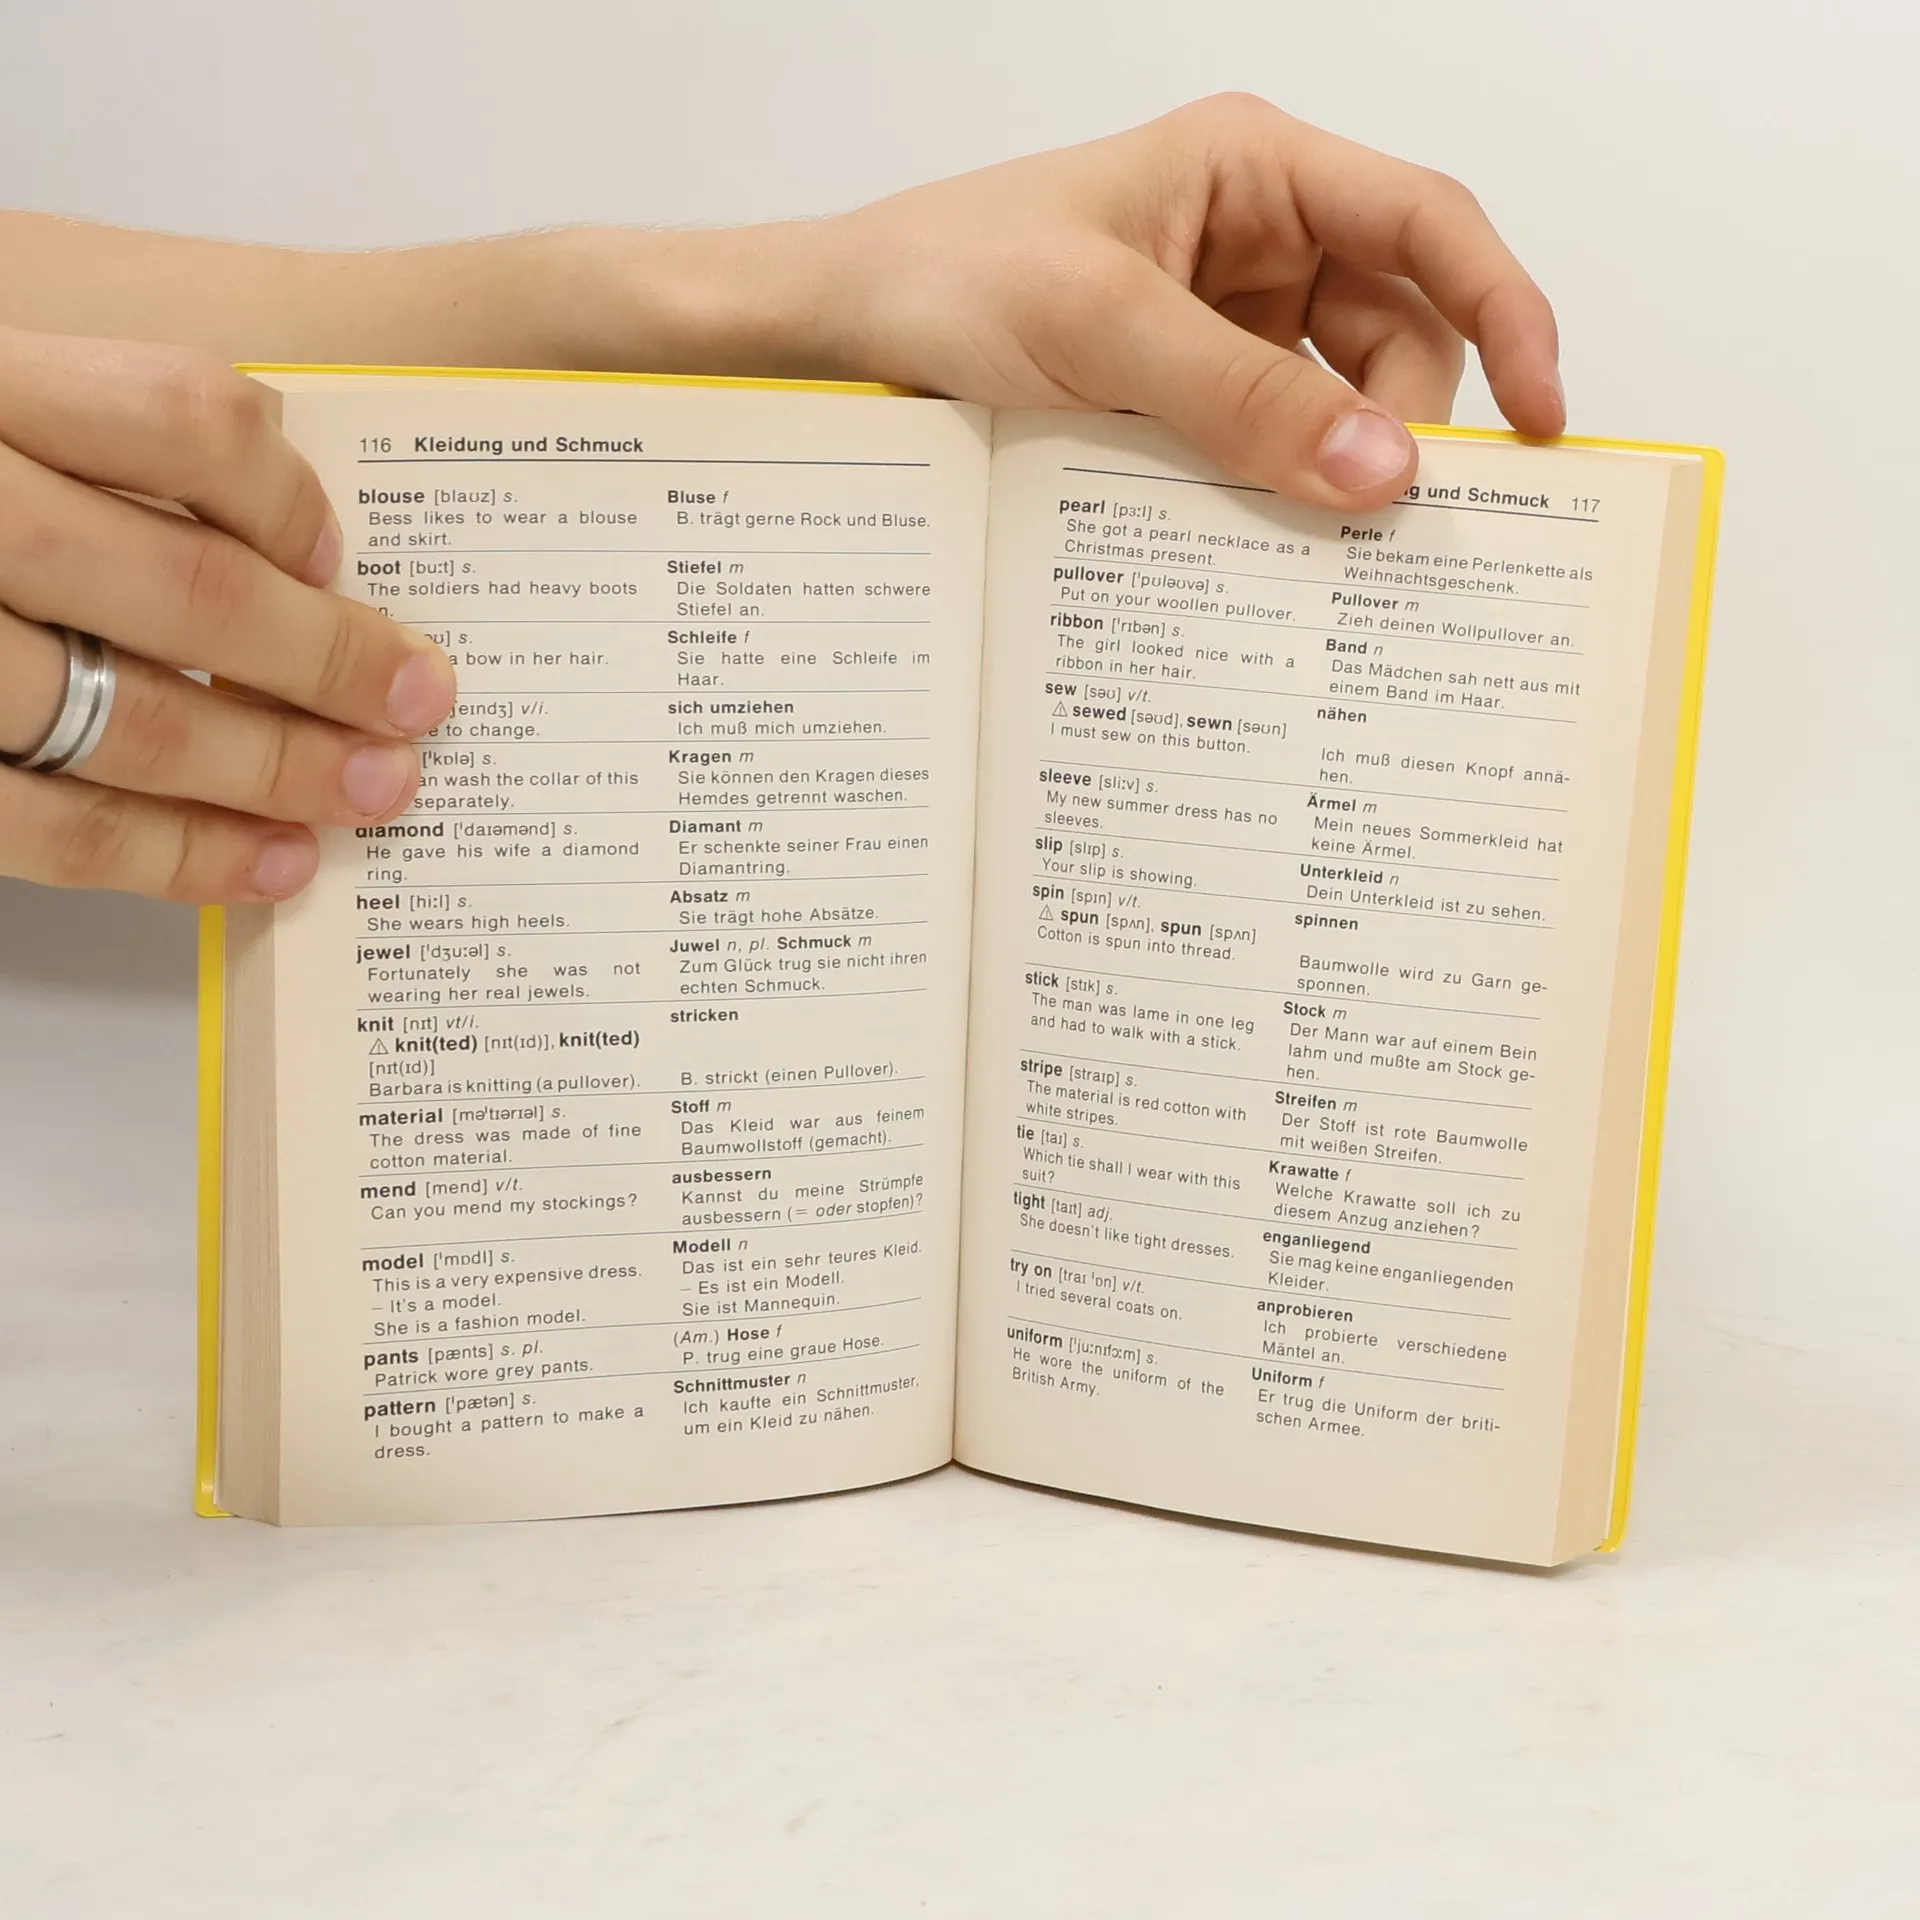 116 Kleidung und Schmuck
blouse [blaʊz] s.
Bess likes to wear a blouse
and skirt.
Bluse f
B. trägt gerne Rock und Bluse.
boot [buːt] s.
The soldiers had heavy boots
Stiefel m
Die Soldaten hatten schwere
Stiefel an.
s.
a bow in her hair.
Schleife f
Sie hatte eine Schleife im
Haar.
v/i.
to change.
sich umziehen
Ich muß mich umziehen.
['kɒlə] s.
wash the collar of this
separately.
Kragen m
Sie können den Kragen dieses
Hemdes getrennt waschen.
diamond ['daɪəmənd] s.
He gave his wife a diamond
ring.
Diamant m
Er schenkte seiner Frau einen
Diamantring.
heel [hiːl] s.
She wears high heels.
Absatz m
Sie trägt hohe Absätze.
jewel ['dʒuːəl] s.
Fortunately she was not
wearing her real jewels.
Juwel n, pl. Schmuck m
Zum Glück trug sie nicht ihren
echten Schmuck.
knit [nɪt] vt/i.
⚠ knit(ted) [nɪt(ɪd)], knit(ted)
[nɪt(ɪd)]
Barbara is knitting (a pullover).
stricken
B. strickt (einen Pullover).
material [mə'tɪərɪəl] s.
The dress was made of fine
cotton material.
Stoff m
Das Kleid war aus feinem
Baumwollstoff (gemacht).
mend [mend] v/t.
Can you mend my stockings?
ausbessern
Kannst du meine Strümpfe
ausbessern (= oder stopfen)?
model ['mɒdl] s.
This is a very expensive dress.
– It's a model.
She is a fashion model.
Modell n
Das ist ein sehr teures Kleid.
– Es ist ein Modell.
Sie ist Mannequin.
pants [pænts] s. pl.
Patrick wore grey pants.
(Am.) Hose f
P. trug eine graue Hose.
pattern ['pætən] s.
I bought a pattern to make a
dress.
Schnittmuster n
Ich kaufte ein Schnittmuster,
um ein Kleid zu nähen.
und Schmuck 117
pearl [pɜːl] s.
She got a pearl necklace as a
Christmas present.
Perle f
Sie bekam eine Perlenkette als
Weihnachtsgeschenk.
pullover ['pʊləʊvə] s.
Put on your woollen pullover.
Pullover m
Zieh deinen Wollpullover an.
ribbon ['rɪbən] s.
The girl looked nice with a
ribbon in her hair.
Band n
Das Mädchen sah nett aus mit
einem Band im Haar.
sew [səʊ] v/t.
⚠ sewed [səʊd], sewn [səʊn]
I must sew on this button.
nähen
Ich muß diesen Knopf annä-
hen.
sleeve [sliːv] s.
My new summer dress has no
sleeves.
Ärmel m
Mein neues Sommerkleid hat
keine Ärmel.
slip [slɪp] s.
Your slip is showing.
Unterkleid n
Dein Unterkleid ist zu sehen.
spin [spɪn] v/t.
⚠ spun [spʌn], spun [spʌn]
Cotton is spun into thread.
spinnen
Baumwolle wird zu Garn ge-
sponnen.
stick [stɪk] s.
The man was lame in one leg
and had to walk with a stick.
Stock m
Der Mann war auf einem Bein
lahm und mußte am Stock ge-
hen.
stripe [straɪp] s.
The material is red cotton with
white stripes.
Streifen m
Der Stoff ist rote Baumwolle
mit weißen Streifen.
tie [taɪ] s.
Which tie shall I wear with this
suit?
Krawatte f
Welche Krawatte soll ich zu
diesem Anzug anziehen?
tight [taɪt] adj.
She doesn't like tight dresses.
enganliegend
Sie mag keine enganliegenden
Kleider.
try on [traɪ 'ɒn] v/t.
I tried several coats on.
anprobieren
Ich probierte verschiedene
Mäntel an.
uniform ['juːnɪfɔːm] s.
He wore the uniform of the
British Army.
Uniform f
Er trug die Uniform der briti-
schen Armee.